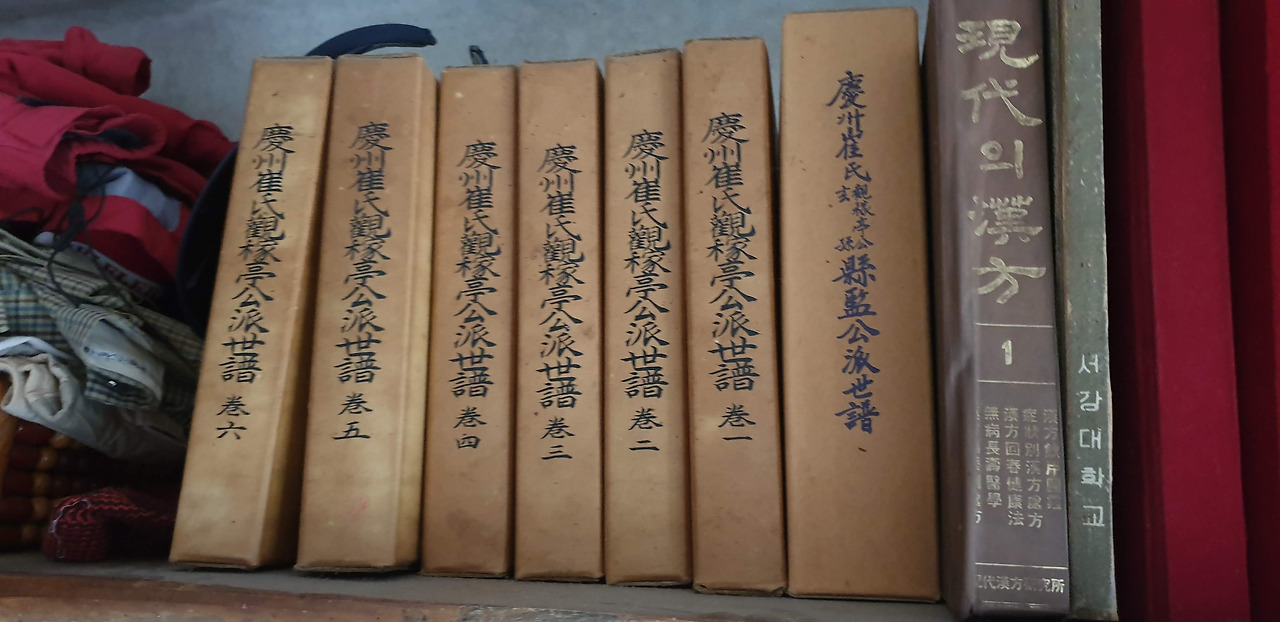 慶州崔氏觀稼亭公派世譜 卷六
慶州崔氏觀稼亭公派世譜 卷五
慶州崔氏觀稼亭公派世譜 卷四
慶州崔氏觀稼亭公派世譜 卷三
慶州崔氏觀稼亭公派世譜 卷二
慶州崔氏觀稼亭公派世譜 卷一
慶州崔氏觀稼亭公玄孫縣監公派世譜
現代의 漢方
1
漢方
症狀別漢方處方
漢方回春健康法
無病長壽醫學
代漢方研究所
서강대화교